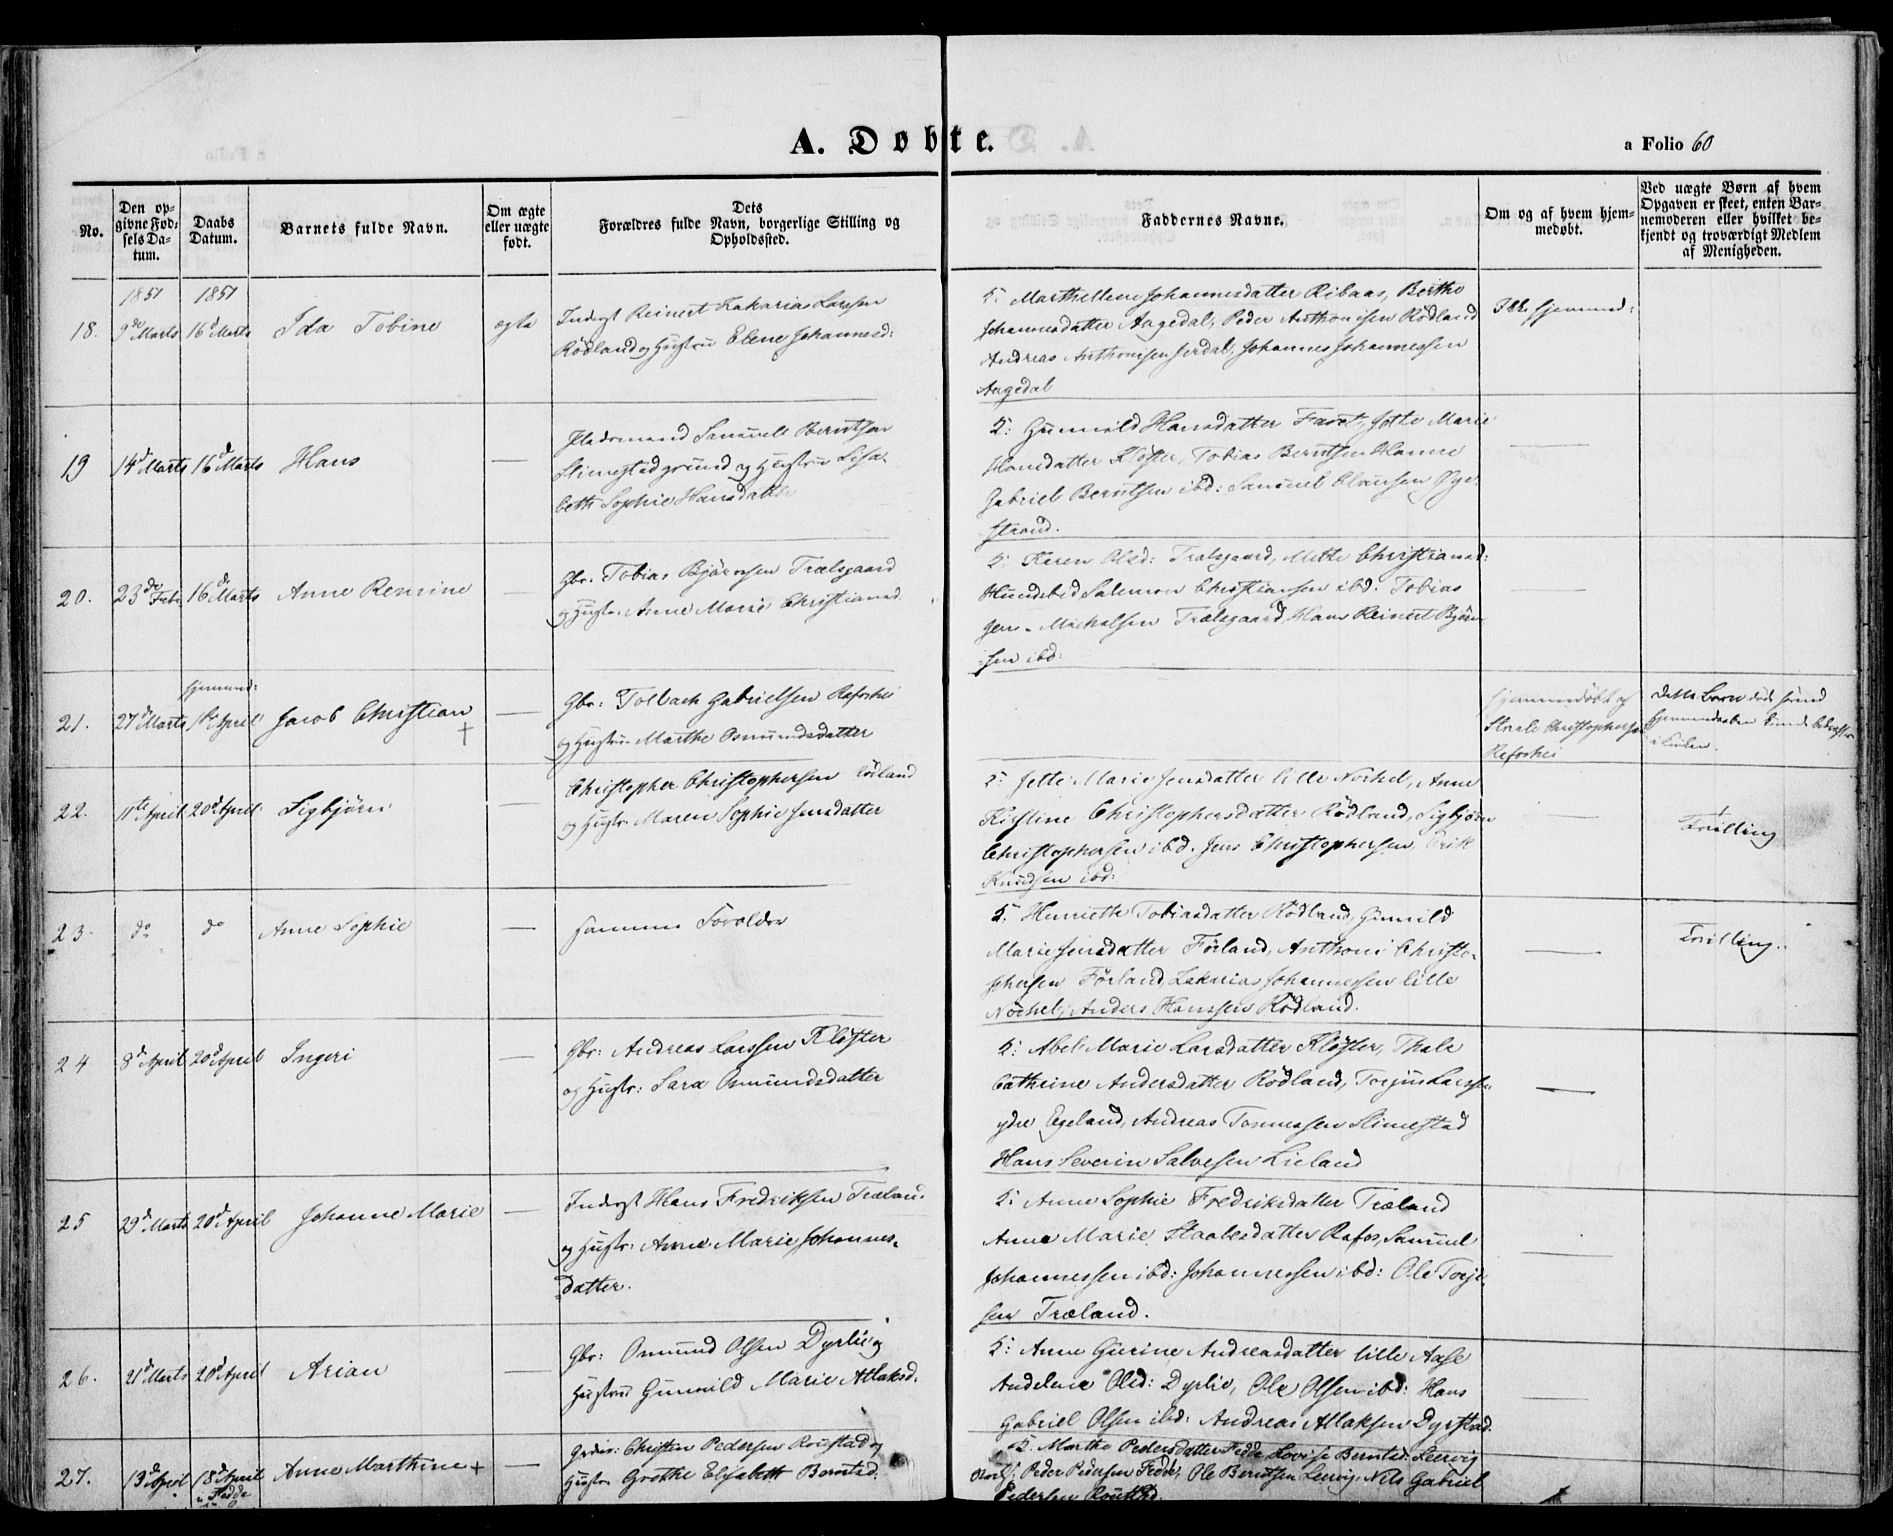 A. Døbte.
a Folio 60
No.
Den op-
givne Fød-
sels Da-
tum.
Daabs
Datum.
Barnets fulde Navn.
Om ægte
eller uægte
født.
Dets
Forældres fulde Navn, borgerlige Stilling og
Opholdssted.
Faddernes Navne.
Om og af hvem hjem-
medøbt.
Ved uægte Børn af hvem
Opgaven er skeet, enten Bar-
nemoderen eller hvilket be-
kjendt og troværdigt Medlem
af Menigheden.
1851 1851
18. 9de Marts 16d Marts Ida Tobine ægte
Inderst Reinert Zakarias Larssen
Rødland og Hustru Elene Johannesd:
5: Marthe Johannesdatter Ribaas, Berthe
Johannesdatter Aagedal, Peder Anthonisen Rødland
Andreas Anthonisen Johannes Johannessen
Aagedal
Ikke hjemmed:
19 14d Marts 16d Marts Hans —
Pladsmand Samuell Berntsen
Slimestad grund og Hustru Lisa-
beth Sophie Hansdatter
5: Gunnild Hansdatter Jette Marie
Hansdatter Kløster, Tobias Berntsen
Gabriel Berntsen ibd: Samuel Clausen Øye-
strand.
20. 23de Febr 16de Marts Anne Remine —
Gbr. Tobias Bjørnsen Trælsgaard
og Hustr: Anne Marie Christiansd.
5: Karen Olsd: Trælsgaard, Mette Christiansd:
Salemon Christiansen ibd. Tobias
Jens- Michalsen Trælsgaard, Hans Reinert Bjørn-
sen ibd:
hjemmed:
21. 27d Marts 1ste April Jacob Christian † —
Gbr: Tolbach Gabrielsen Refshei
og Hustru Marthe Osmundsdatter
hjemmedøbt af
Staale Christophersen
Refshei
dette Barn døde førend
hjemmedaaben kunde bekræftes
i Kirken.
22. 11te April 20d April Sigbjørn —
Christopher Christophersen Rødland
og Hustr: Maren Sophie Jensdatter
5: Jette Marie Jensdatter lille Nøchel, Anne
Kirstine Christophersdatter Rødland, Sigbjørn
Christophersen ibd. Jens Christophersen, Erik
Knudsen ibd:
Tvilling
23. do do Anne Sophie —
samme Forældre
5: Henriette Tobiasdatter Rødland, Gunnild
Marie Jensdatter Førland, Anthoni Christo-
phersen Førland, Zakarias Johannessen lille
Nøchel, Anders Hanssen Rødland.
Tvilling.
24 8d April 20d April Ingeri —
Gbr: Andreas Larssen Kløster
og Hustr: Sara Osmundsdatter
5: Abel Marie Larsdatter Kløster, Thale
Cathrine Andersdatter Rødland, Torjus Larssen
ydre Egeland, Andreas Tonnessen Slimestad
Hans Severin Salvesen Lieland
25 29d Marts 20d April Johanne Marie —
Inderst Hans Fredriksen Træland
og Hustr: Anne Marie Johannes-
datter.
5: Anne Sophie Fredriksdatter Træland
Anne Marie Staalesdatter Rafos, Samuel
Johannessen ibd: Johannessen ibd: Ole Torje-
sen Træland.
26. 21d Marts 20d April Arian —
Gbr: Osmund Olsen Dyrlie og
Hustru Gunnild Marie Atlaksd.
5: Anne Gurine Andreasdatter lille Aase
Andelene Olsd: Dyrlie, Ole Olsen ibd: Hans
Gabriel Olsen ibd: Andreas Atlaksen Dyrstad.
27. 13d April 18d April Anne Marthine + —
i Fedde
Christen Pedersen Roustad og
Hustr. Grethe Elisabeth Berntsd.
5. Marthe Pedersdatter Fedde Lovise Berntsd: Leervig
Peder Pedersen Fedde, Ole Berntsen Leervig, Nils Gabriel
Pedersen Roustad.